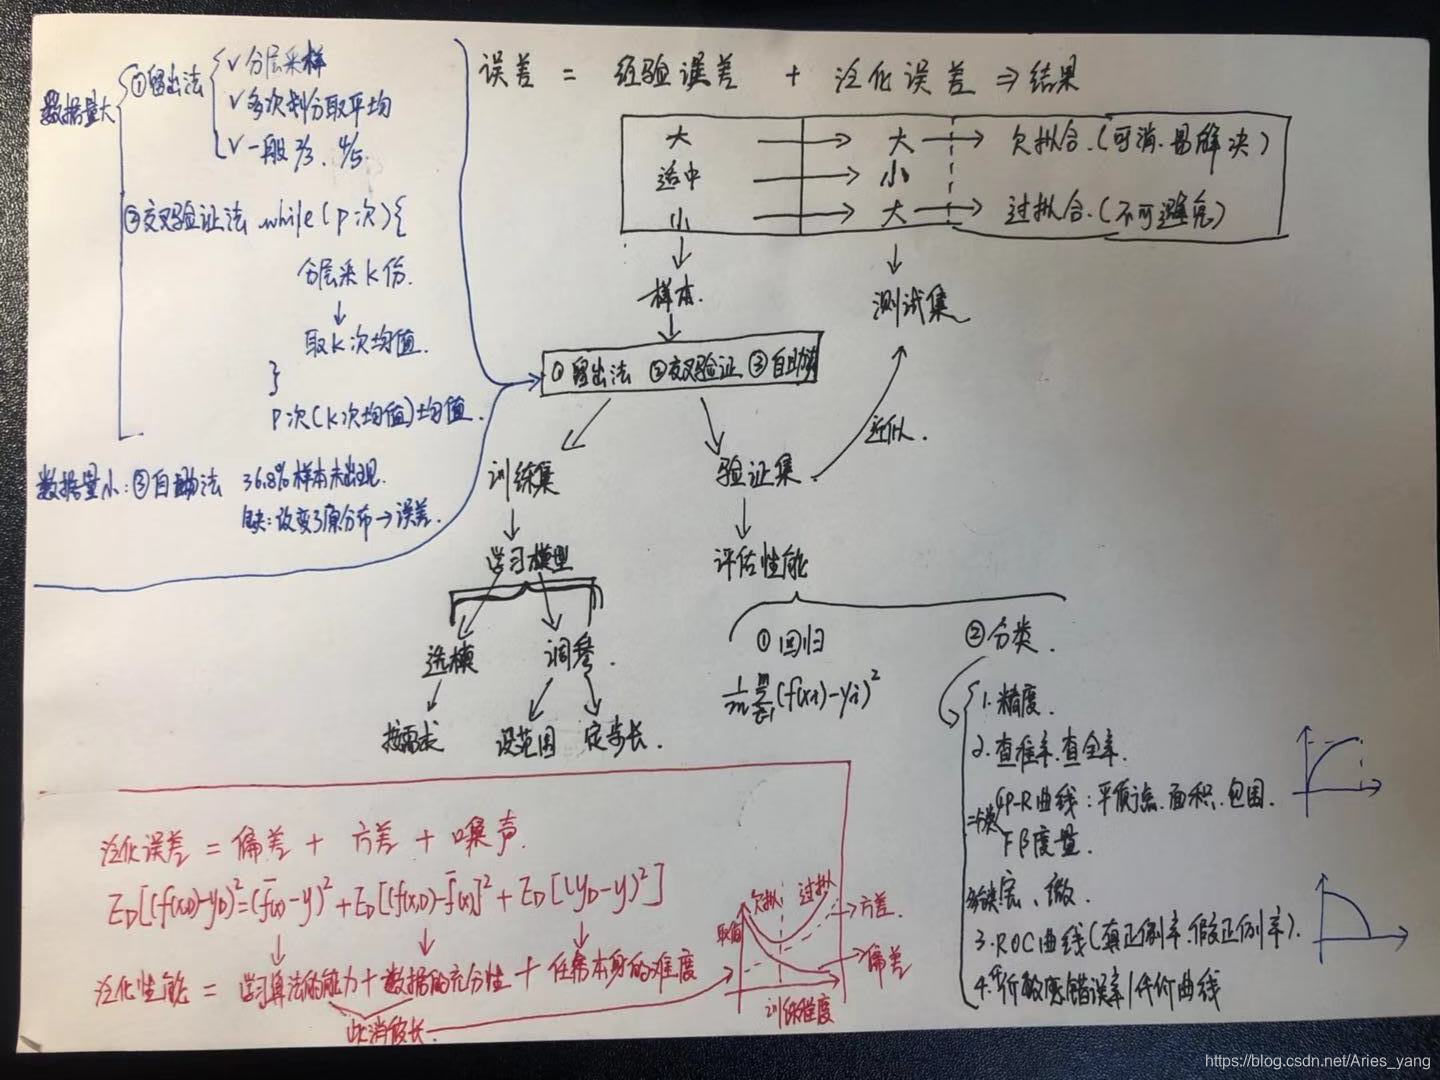 数据量大
①留出法
√ 分层采样
√ 多次划分取平均
√ 一般 2/3、4/5
②交叉验证法 while(p次){
分层采k份.
↓
取k次均值.
}
p次(k次均值)均值.
数据量小:③自助法 36.8%样本未出现.
缺:改变了原分布→误差.
误差 = 经验误差 + 泛化误差 ⇒ 结果
大 → 大 → 欠拟合.(可消.易解决)
适中 → 小
小 → 大 → 过拟合.(不可避免)
样本.
测试集
①留出法 ②交叉验证 ③自助
近似.
训练集
验证集
学习模型
评估性能
选模
调参.
按需求
设范围
定步长.
①回归
1/m Σ(f(xi)-yi)²
②分类.
1.精度.
2.查准率.查全率.
二分类 P-R曲线:平衡点.面积.包围.
Fβ度量.
多分类 宏、微.
3.ROC曲线(真正例率.假正例率).
4.代价敏感错误率/代价曲线
泛化误差 = 偏差 + 方差 + 噪声.
E_D[(f(x,D)-y_D)²=(f̄(x)-y)²+E_D[(f(x,D)-f̄(x)]²+E_D[(y_D-y)²]
泛化性能 = 学习算法的能力 + 数据的充分性 + 任务本身的难度
此消彼长.
欠拟
过拟
方差.
偏差
训练程度
https://blog.csdn.net/Aries_yang